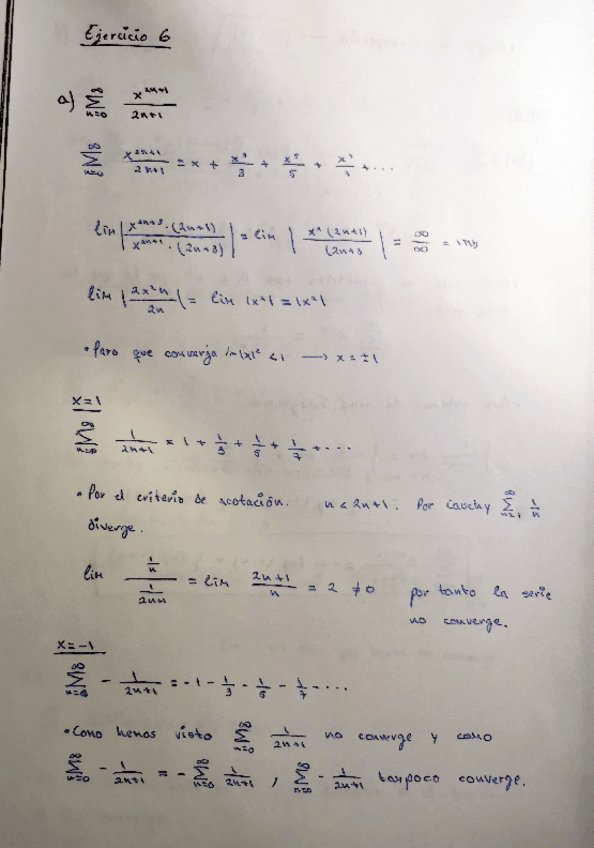 Ejercicio 6
a) ∑_{n=0}^{∞} x^{2n+1}/(2n+1)
∑_{n=0}^{∞} x^{2n+1}/(2n+1) = x + x³/3 + x⁵/5 + x⁷/7 + ...
lim |x^{2n+3}·(2n+1) / x^{2n+1}·(2n+3)| = lim |x²(2n+1) / (2n+3| = ∞/∞ = ind
lim |2x²n / 2n| = lim |x²| = |x²|
• Para que converja |x|² < 1 ⟶ x = ±1
x=1
∑_{n=0}^{∞} 1/(2n+1) = 1 + 1/3 + 1/5 + 1/7 + ...
• Por el criterio de acotación. n < 2n+1. Por Cauchy ∑_{n=1}^{∞} 1/n
diverge.
lim (1/n)/(1/(2n+1)) = lim (2n+1)/n = 2 ≠ 0 por tanto la serie
no converge.
x=-1
∑_{n=0}^{∞} - 1/(2n+1) = -1 - 1/3 - 1/5 - 1/7 - ...
• Como hemos visto ∑_{n=0}^{∞} 1/(2n+1) no converge y como
∑_{n=0}^{∞} - 1/(2n+1) = -∑_{n=0}^{∞} 1/(2n+1) , ∑_{n=0}^{∞} - 1/(2n+1) tampoco converge.